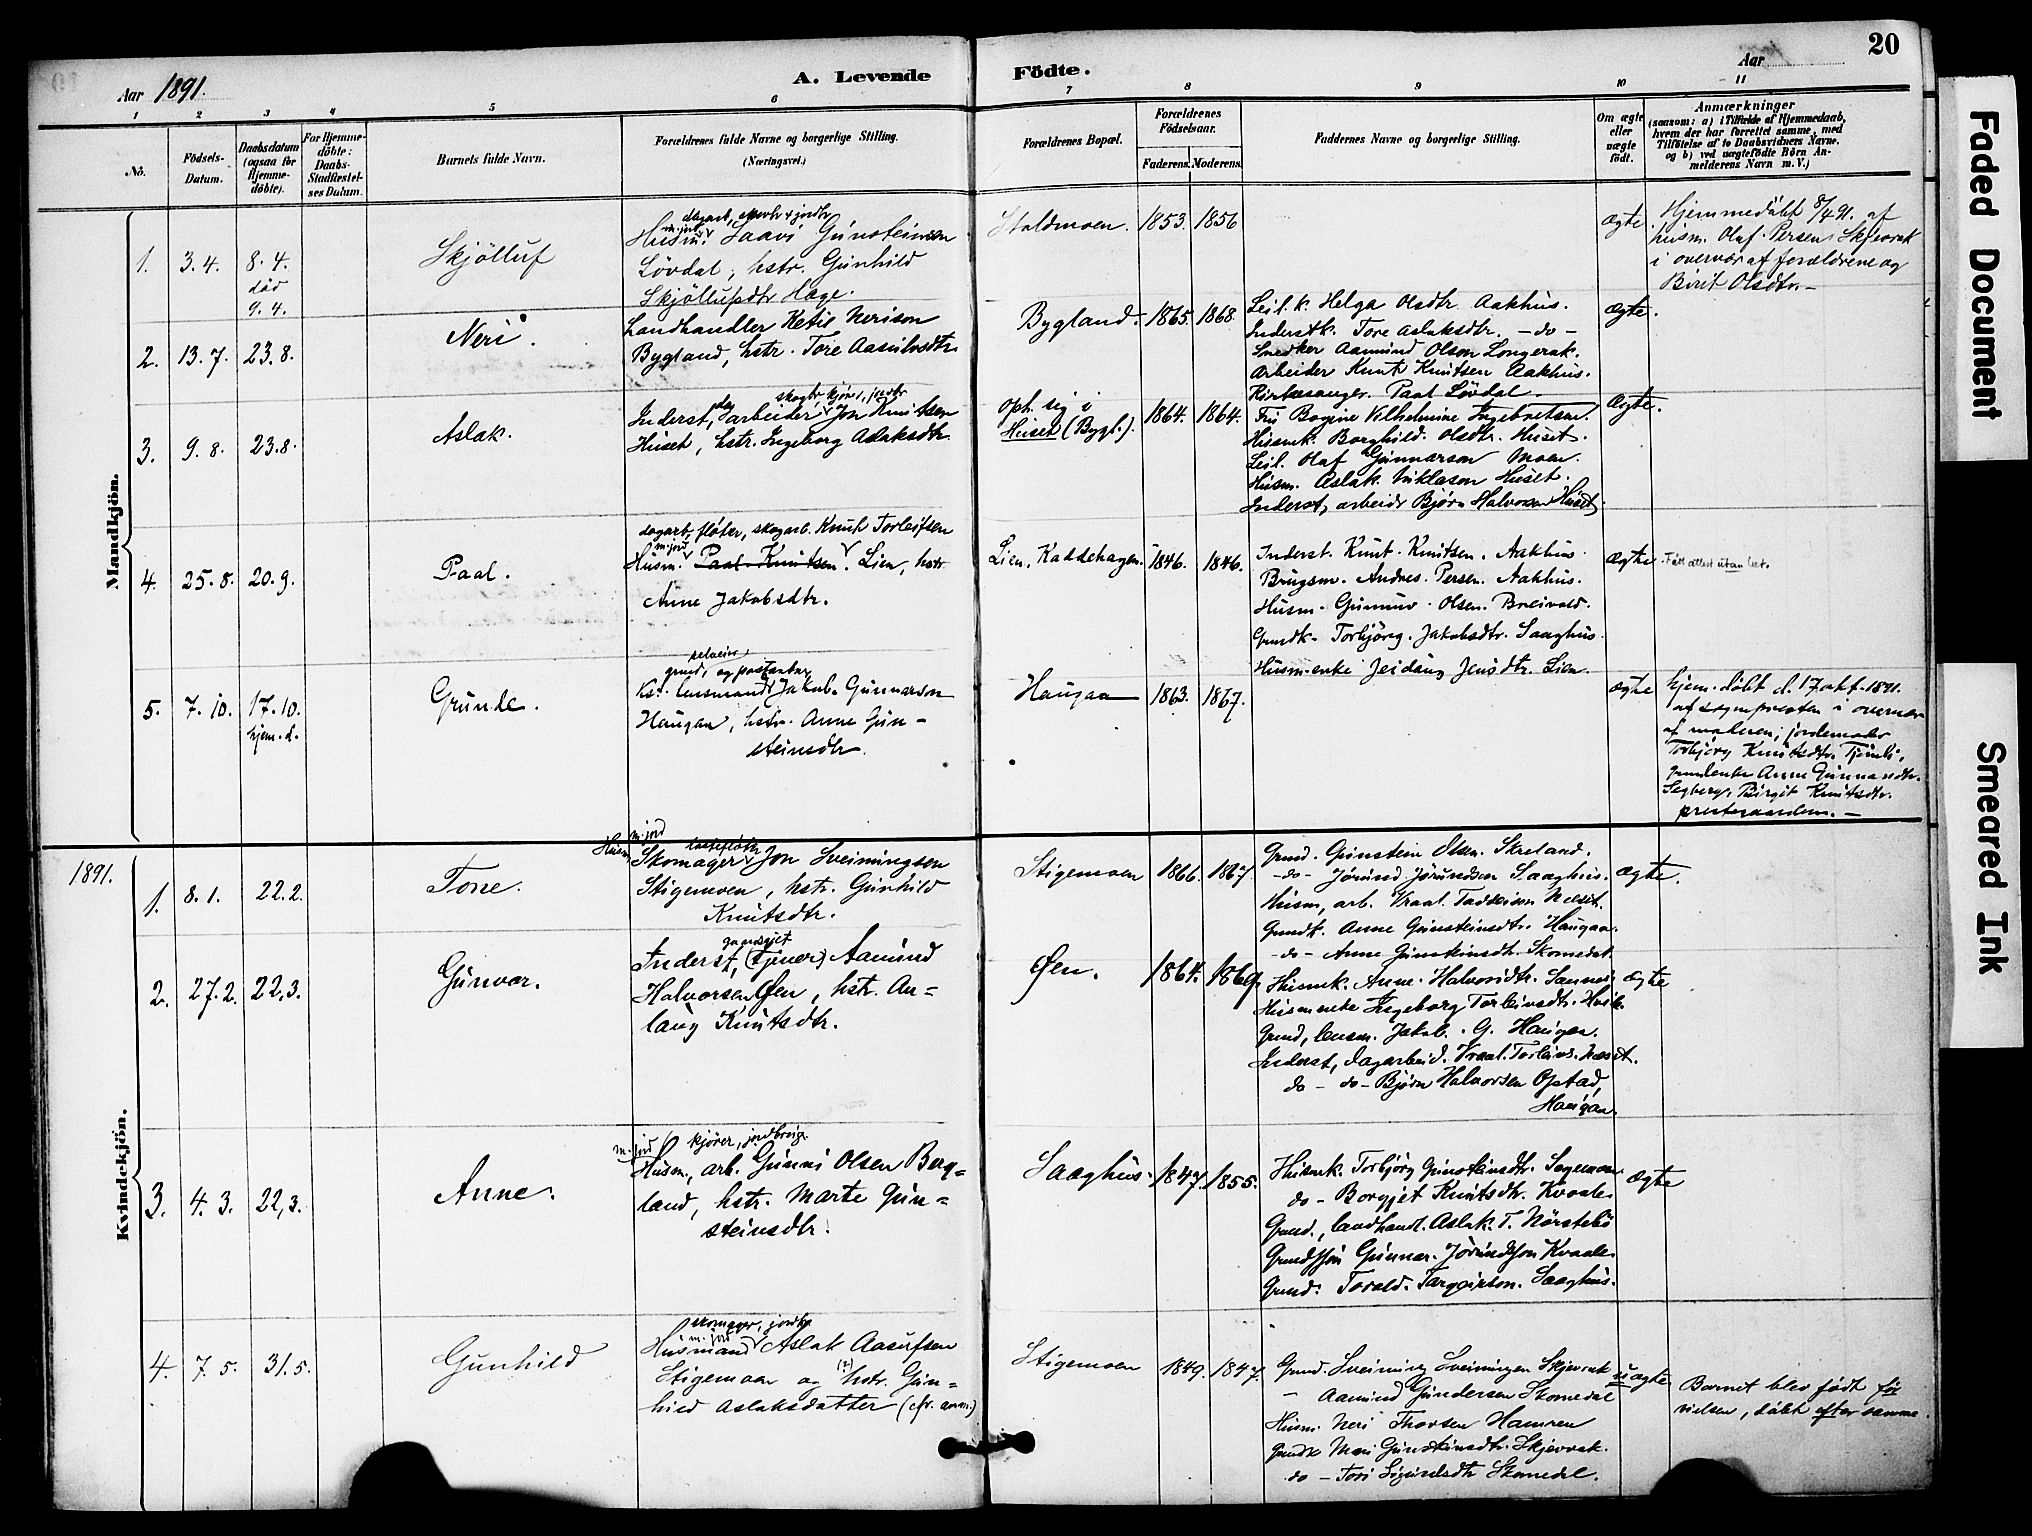 20
Aar 1891.
A. Levende
Födte.
Aar
1 2 3 4 5 6 7 8 9 10 11
No.
Födsels-Datum.
Daabsdatum (ogsaa for Hjemme-döbte).
For Hjemme-döbte: Daabs-Stadfæstel-ses Datum.
Barnets fulde Navn.
Forældrenes fulde Navne og borgerlige Stilling.
(Næringsvei.)
Forældrenes Bopæl.
Forældrenes Födselsaar.
Faderens. Moderens.
Faddernes Navne og borgerlige Stilling.
Om ægte eller uægte født.
Anmærkninger
(saasom: a) i Tilfælde af Hjemmedaab,
hvem der har forrettet samme, med
Tilføielse af to Daabsvidners Navne,
og b) ved uægtefødte Börn An-
melderens Navn m. V.)
Mandkjön.
1. 3.4. 8.4. død 9.4.
Skjölluf
Husm. Saavi Gunsteinsen
Lövdal, hstr. Gunhild
Skjöllufsdtr Hage.
Staldmoen. 1853. 1856
ægte
Hjemmedöbt 8/4 91. af
husm. Olaf Persen Skjevrak
i overvær af forældrene og
Birit Olsdtr. –
2. 13.7. 23.8.
Neri.
Landhandler Ketil Nerison
Bygland, hstr. Tore Aasulvsdtr.
Bygland. 1865. 1868.
Leil.k. Helga Olsdtr. Aakhus.
Inderstk. Tore Aslaksdtr. – do –
Snedker Aamund Olson Longerak.
Arbeider Knut Knutsen Aakhus.
Kirkesanger. Paal Lövdal
ægte.
3. 9.8. 23.8.
Aslak.
Inderst, arbeider Jon Knutsen
Huset, hstr. Ingeborg Aslaksdtr.
oph. sig i
Huset (Bygl.). 1864. 1864.
Husmk. Borghild. Olsdtr. Huset.
Leil. Olaf Gunnarson Moen.
Husm. Aslak Niklason Huset.
Inderst, arbeidr Bjørn Halvorsen Huset
ægte.
4. 25.8. 20.9.
Paal.
dagarb, fløter, skogarb. Knut Torleifsen
m. jord
Husm. Paal Knutsen. Lien, hstr.
Anne Jakobsdtr.
Lien, Kaddehagen. 1846. 1846.
Inderst. Knut Knutsen. Aakhus.
Brugsm. Andres Persen. Aakhus.
Husm. Gunnuv Olsen. Breivold.
Gundk. Torbjörg. Jakobsdtr. Saaghus.
Husmenke Jeidaug Jensdtr. Lien.
ægte.
5. 7.10. 17.10. hjem.d.
Grunde.
Kst. lensmand Jakob Gunnarson
Haugaa, hstr. Anne Gun-
steinsdtr.
Haugaa 1863. 1867.
ægte
hjem. döbt d. 17 okt. 1891.
af sogneprесten i overvær
af moderen; jordemoder
Torbjörg Knutsdtr.
Anne Gunnarsdtr.
Birgit Knutsdtr.
prestegaarden. –
1891.
Kvindekjön.
1. 8.1. 22.2.
Tone.
Husm. m. jord
Skomager Jon Sveinungsen
Stigemoen, hstr. Gunhild
Knutsdtr.
Stigemoen 1866. 1867.
Grund. Gunstein Olsen. Skreland.
– do – Jørund Jørundsen Saaghus.
Husm, arb. Vraal Tadseison Neset.
Gundk. Anne Gunsteinsdtr. Haugaa.
– do – Anne Gunsteinsdtr. Skomedal.
ægte.
2. 27.2. 22.3.
Gunvor.
Inderst, (Tjener) Aamund
Halvorsen Øen, hstr. An-
laug Knutsdtr.
Øen. 1864. 1869
Husmk. Anne Halvorsdtr. Sannes
Husmenke Ingeborg Torleivsdtr.
Grund, lensm. Jakob. G. Haugaa.
Inderst, dagarbeid. Vraal. Torleivs. Neset.
do – do – Bjørn Halvorsen Opstad,
Haugaa.
ægte
3. 4.3. 22.3.
Anne.
m. jord kjører, jordbrug.
Husm., arb. Gunni Olsen Berg-
land, hstr. Marte Gun-
steinsdtr.
Saaghus. 1847. 1855.
Husmk. Torbjörg Gunsteinsdtr. Sagemoen
do – Borgjet Knutsdtr. Kvaale.
Grund., landhandl. Aslak. T. Nörstebö
Grundssön Gunnar. Jörundsson Kvaale.
Grund: Torald. Targeirson. Saaghus.
ægte
4. 7.5. 31.5.
Gunhild
skomager, jordbr
m. jord
Husmand Aslak Aasulfsen
Stigemoen og (?) hstr. Gun-
hild Aslaksdatter (cfr. anm.)
Stigemoen 1849. 1847.
Grund. Sveinung Sveinungen Skjevrak
– Aamund Gundersen Skomedal
Husm. Neri Thorsen Hamren
Gundk Mari Gunsteinsdtr. Skjevrak.
do – Tori Sigurdsdtr Skomedal.
uægte
Barnet blev født før
vielsen, döbt efter samme
Faded Document
Smeared Ink